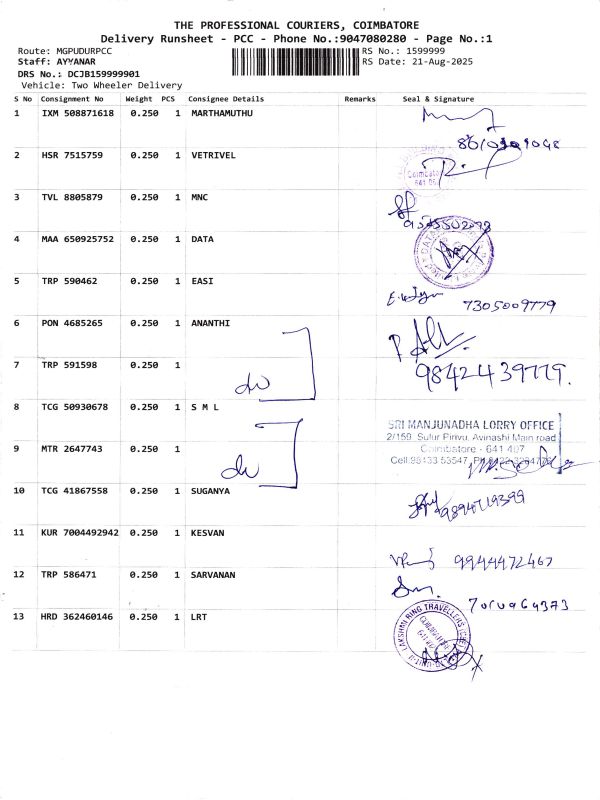 THE PROFESSIONAL COURIERS, COIMBATORE
Delivery Runsheet - PCC - Phone No.:9047080280 - Page No.:1
Route: MGPUDURPCC RS No.: 1599999
Staff: AYYANAR RS Date: 21-Aug-2025
DRS No.: DCJB159999901
Vehicle: Two Wheeler Delivery
S No Consignment No Weight PCS Consignee Details Remarks Seal & Signature
1 IXM 508871618 0.250 1 MARTHAMUTHU
2 HSR 7515759 0.250 1 VETRIVEL
Coimbatore
3 TVL 8805879 0.250 1 MNC
4 MAA 650925752 0.250 1 DATA
5 TRP 590462 0.250 1 EASI
7305009779
6 PON 4685265 0.250 1 ANANTHI
7 TRP 591598 0.250 1
do
9842439779.
8 TCG 50930678 0.250 1 S M L
SRI MANJUNADHA LORRY OFFICE
2/159, Sulur Pirivu, Avinashi Main road
Coimbatore - 641 407
9 MTR 2647743 0.250 1
do
Cell:98433 53547
10 TCG 41867558 0.250 1 SUGANYA
9894719399
11 KUR 7004492942 0.250 1 KESVAN
9944472467
12 TRP 586471 0.250 1 SARVANAN
13 HRD 362460146 0.250 1 LRT
LAKSHAN RING TRAVELLERS